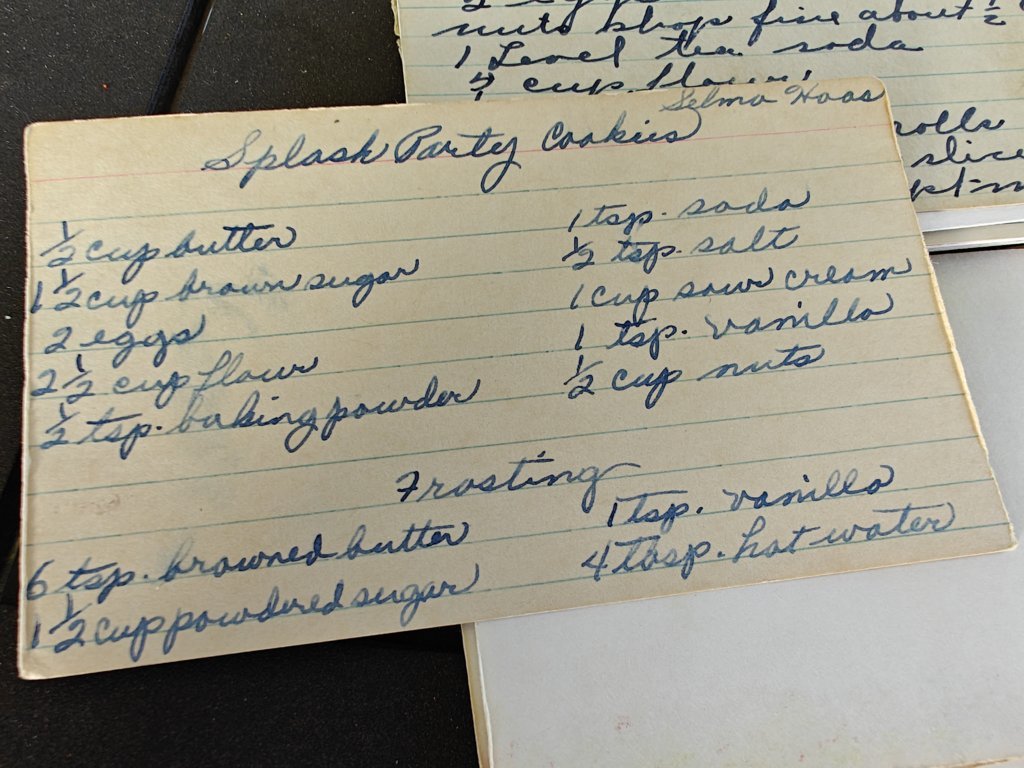 nuts chop fine about ½
1 Level tea. soda
cup flour
rolls
slice
Selma Haas
Splash Party Cookies
½ cup butter
1 ½ cup brown sugar
2 eggs
2 ½ cup flour
½ tsp. baking powder
1 tsp. soda
½ tsp. salt
1 cup sour cream
1 tsp. vanilla
½ cup nuts
Frosting
6 tsp. browned butter
1 ½ cup powdered sugar
1 tsp. vanilla
4 tbsp. hot water